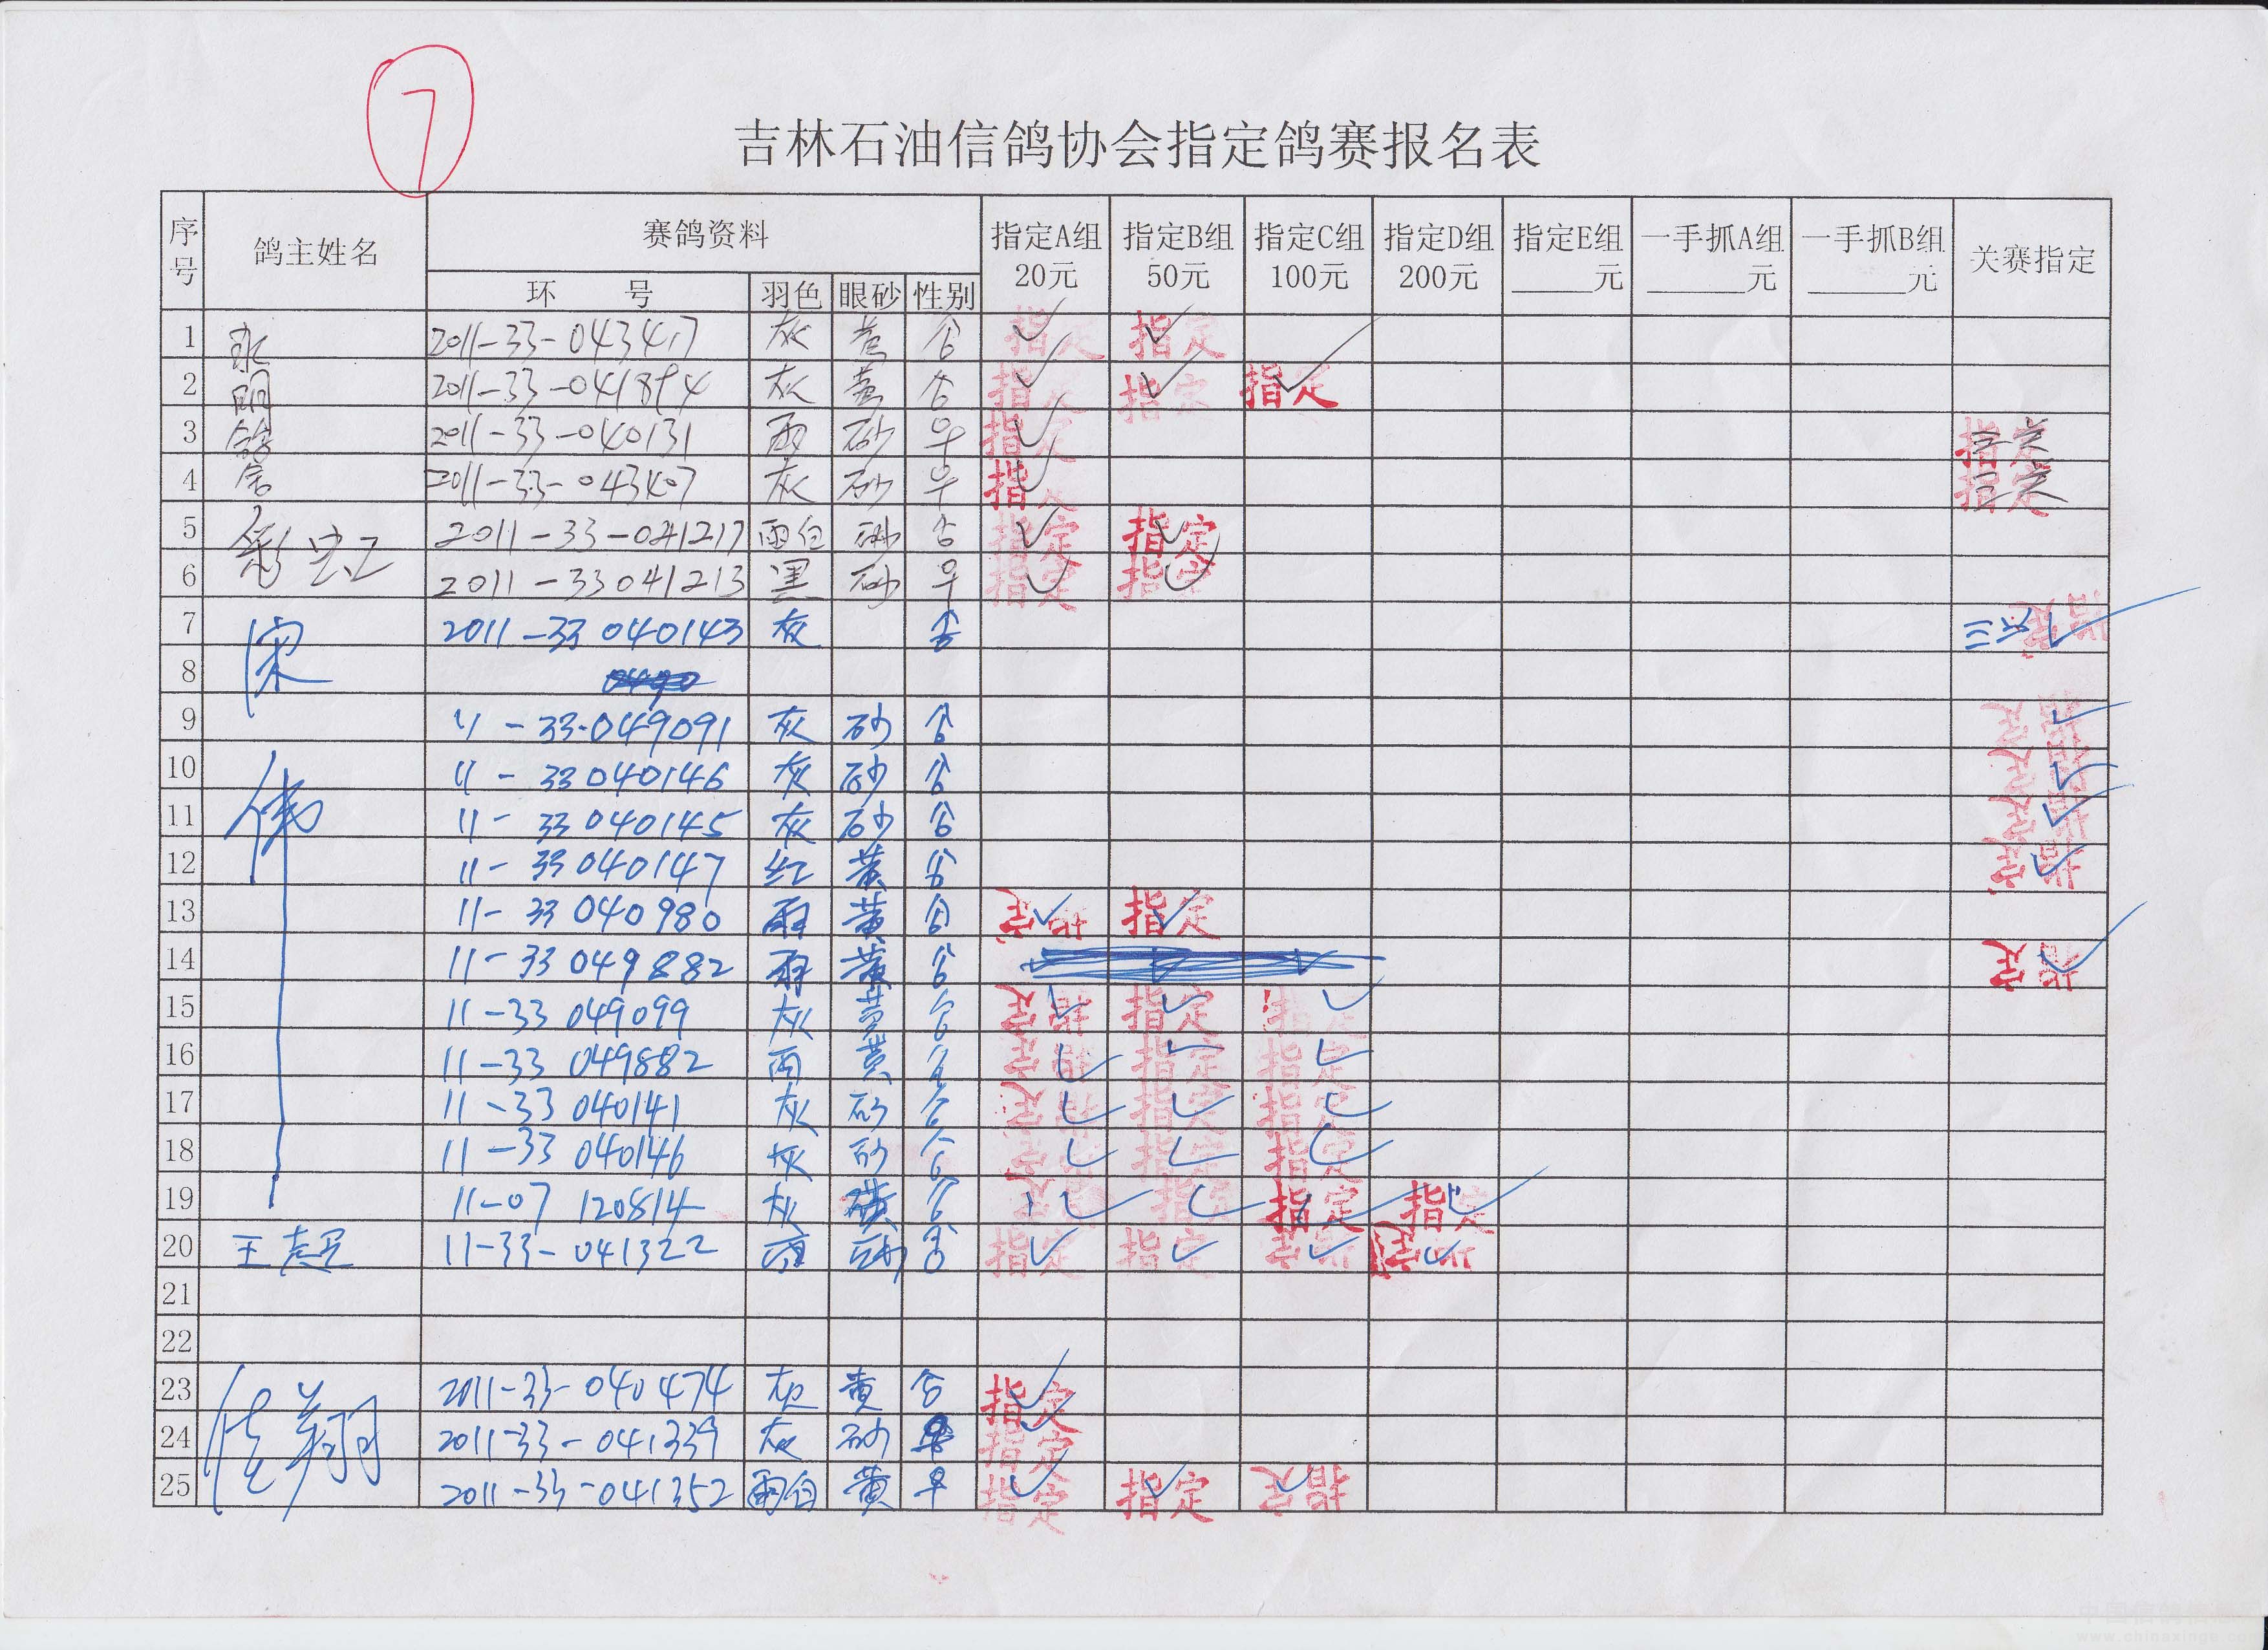 7
吉林石油信鸽协会指定鸽赛报名表
序号 鸽主姓名 赛鸽资料 指定A组 20元 指定B组 50元 指定C组 100元 指定D组 200元 指定E组 ____元 一手抓A组 ____元 一手抓B组 ____元 关赛指定
环 号 羽色 眼砂 性别
1 永 2011-33-043417 灰 黄 ✓ 指定 ✓ 指定
2 明 2011-33-041894 灰 黄 ✓ 指定 ✓ 指定 ✓ 指定
3 鸽 2011-33-040131 雨 砂 ♀ ✓ 指定 三关 指定
4 舍 2011-33-043407 灰 砂 ♀ ✓ 指定 三关 指定
5 2011-33-041217 雨白 砂 ✓ 指定 ✓ 指定
6 2011-33041213 黑 砂 ♀ ✓ 指定 ✓ 指定
7 宋 2011-33 040143 灰 三关 ✓ 指定
8
9 11-33-049091 灰 砂 ✓ 指定
10 伟 11-33040146 灰 砂 ✓ 指定
11 11-33040145 灰 砂 ✓ 指定
12 11-33040147 红 黄 ✓ 指定
13 11-33 040980 雨 黄 ✓ 指定 ✓ 指定
14 11-33 049882 雨 黄 ✓ 指定
15 11-33 049099 灰 黄 ✓ 指定 ✓ 指定 ✓ 指定
16 11-33 049882 雨 黄 ✓ 指定 ✓ 指定 ✓ 指定
17 11-33 040141 灰 砂 ✓ 指定 ✓ 指定 ✓ 指定
18 11-33 040146 灰 砂 ✓ 指定 ✓ 指定 ✓ 指定
19 11-07 120814 灰 黄 ✓ 指定 ✓ 指定 ✓ 指定 ✓ 指定
20 王志超 11-33-041322 砂 ✓ 指定 ✓ 指定 ✓ 指定 ✓ 指定
21
22
23 佳翔 2011-33-040474 灰 黄 ✓ 指定
24 2011-33-041339 灰 砂 ♀ ✓ 指定
25 2011-33-041352 雨白 黄 ♀ ✓ 指定 ✓ 指定 ✓ 指定